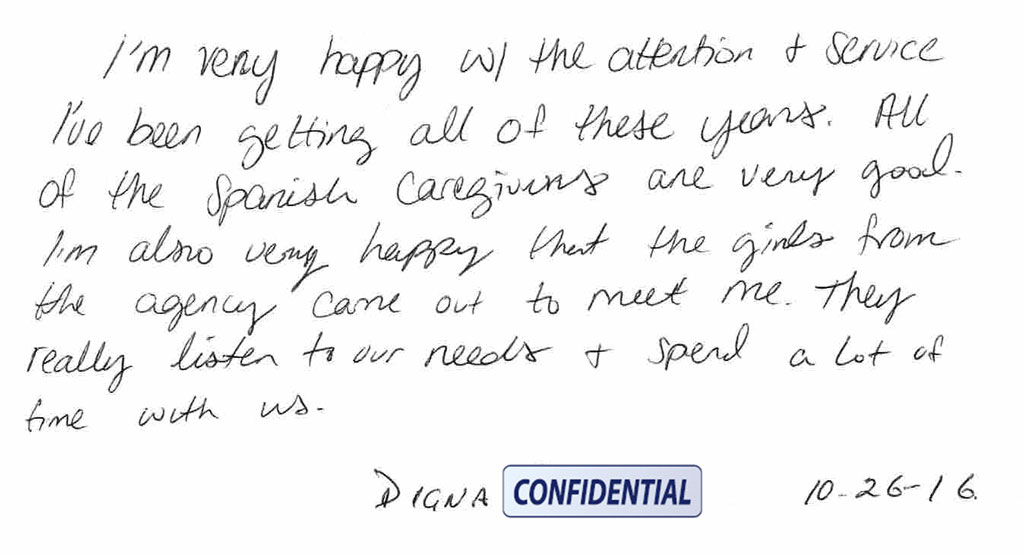 I'm very happy w/ the attention & service
I've been getting all of these years. All
of the Spanish Caregivers are very good.
I'm also very happy that the girls from
the agency came out to meet me. They
really listen to our needs & spend a lot of
time with us.
DIGNA CONFIDENTIAL 10-26-16.